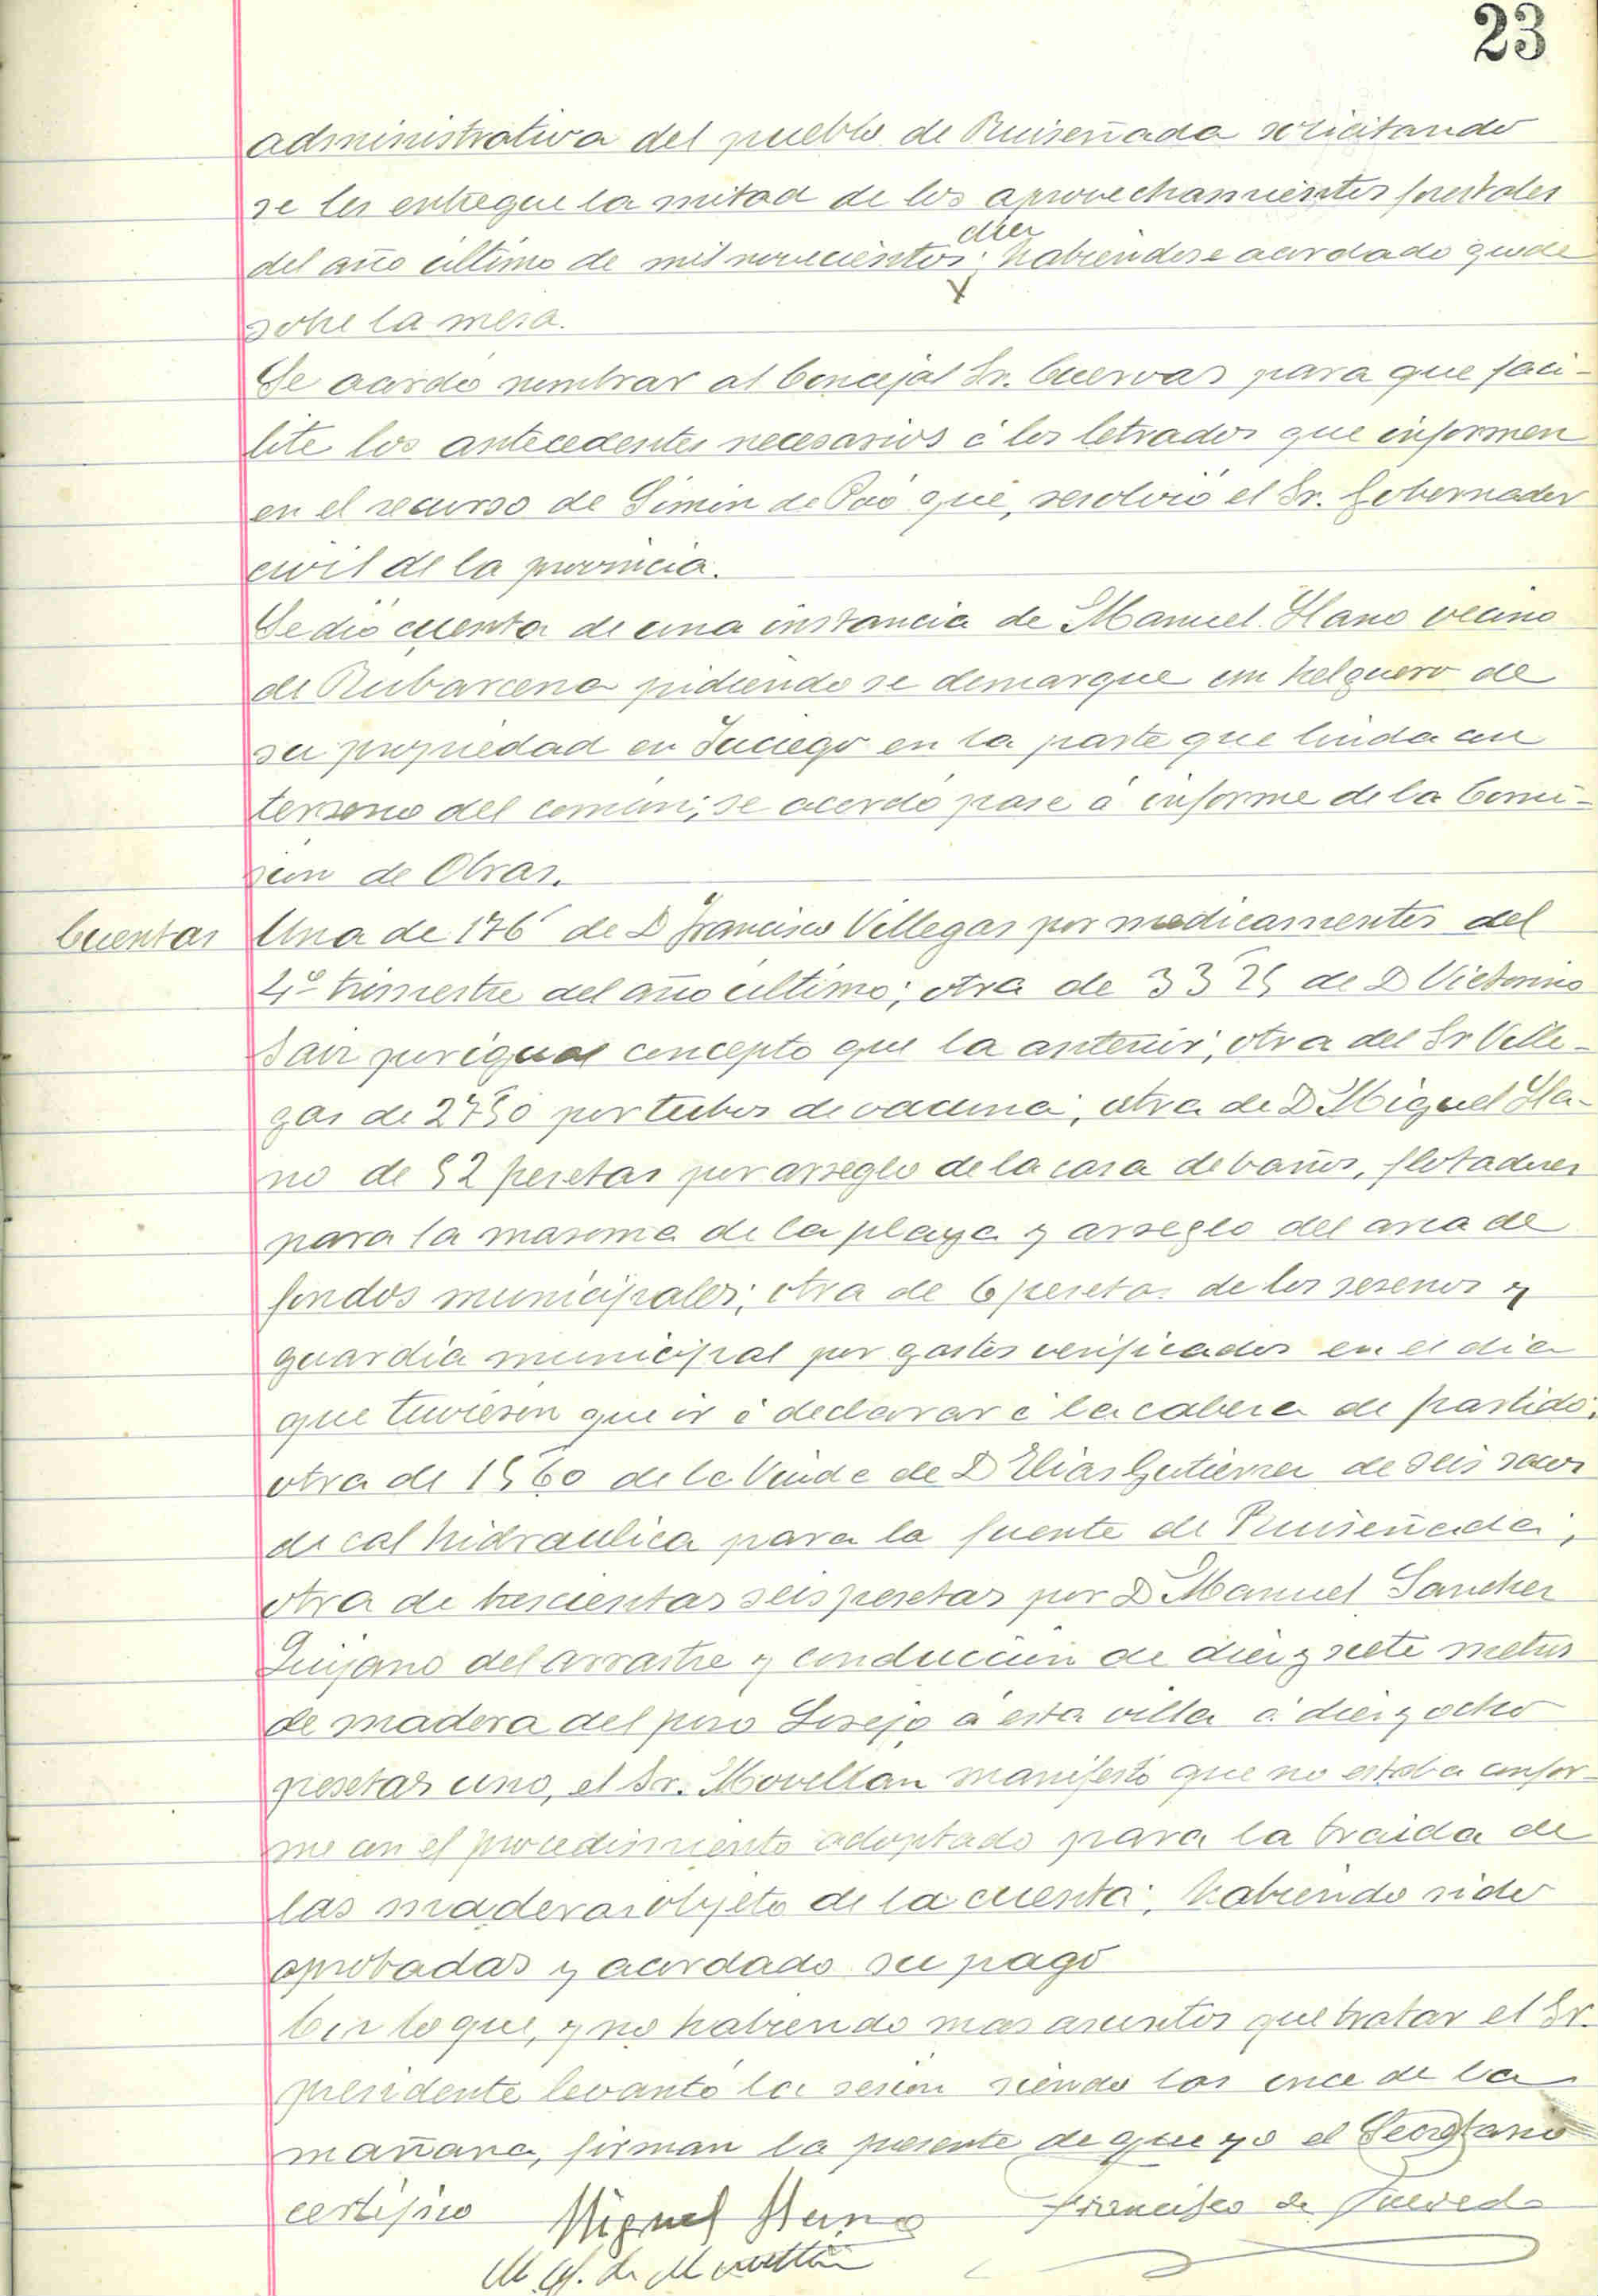 23
administrativa del pueblo de Ruiseñada solicitando
se les entregue la mitad de los aprovechamientos forestales
diez
del año último de mil novecientos; habiendose acordado quede
sobre la mesa.
Se acordó nombrar al Concejal Sr. Cuervas para que faci-
lite los antecedentes necesarios á los letrados que informen
en el recurso de Simón de Poó que, resolvió el Sr. Gobernador
civil de la provincia.
Se dió cuenta de una instancia de Manuel Llano vecino
de Rubarcena pidiendo se demarque un helguero de
su propiedad en en la parte que linda con
terreno del común; se acordó pase á informe de la Comi-
sion de Obras.
Cuentas Una de 176 de D Francisco Villegas por medicamentos del
4º trimestre del año último; otra de 33 25 de D Victorino
Sainz por igual concepto que la anterior; otra del Sr Ville-
gas de 27 50 por tubos de vacuna; otra de D Miguel Lla-
no de 52 pesetas por arreglo de la casa de baños, flotadores
para la maroma de la playa y arreglo del arca de
fondos municipales; otra de 6 pesetas de los serenos y
guardia municipal por gastos verificados en el dia
que tuvieron que ir á declarar á la cabeza de partido;
otra de 15 60 de la Viuda de D Elias Gutierrez de seis sacos
de cal hidraulica para la fuente de Ruiseñada;
otra de trescientas seis pesetas por D Manuel Sanchez
Quijano del arrastre y conducción de diez y siete metros
de madera del á esta villa á diez y ocho
pesetas uno, el Sr. Movellan manifestó que no estaba confor-
me con el procedimiento adoptado para la traida de
las maderas objeto de la cuenta; habiendo sido
aprobadas y acordado su pago
Con lo que, y no habiendo mas asuntos que tratar el Sr.
presidente levantó la sesion siendo las once de la
mañana, firman la presente de que yo el Secretario
certifico Miguel Llano Francisco de Quevedo
M. G. de Movellán